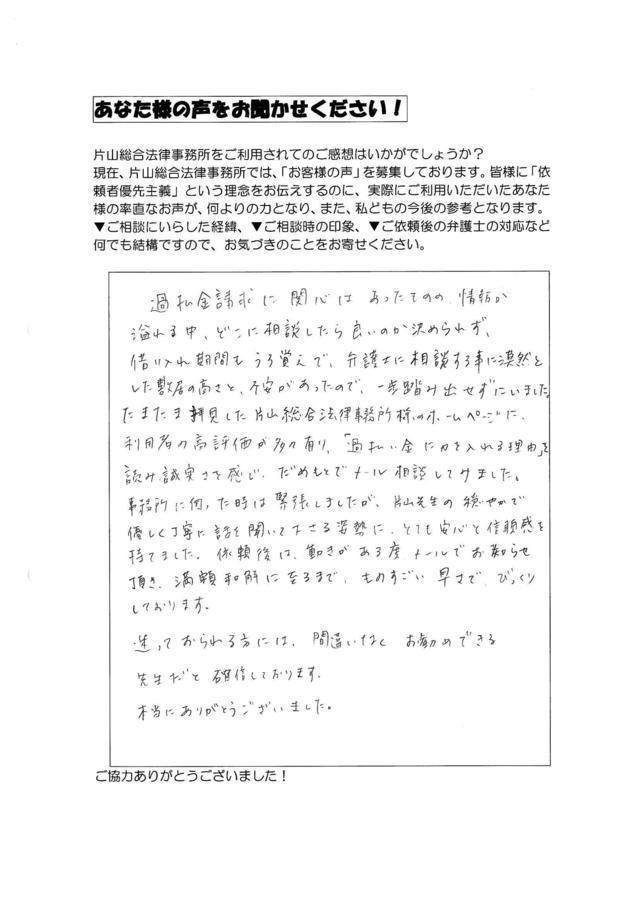 あなた様の声をお聞かせください！
片山総合法律事務所をご利用されてのご感想はいかがでしょうか？
現在、片山総合法律事務所では、「お客様の声」を募集しております。皆様に「依
頼者優先主義」という理念をお伝えするのに、実際にご利用いただいたあなた
様の率直なお声が、何よりの力となり、また、私どもの今後の参考となります。
▼ご相談にいらした経緯、▼ご相談時の印象、▼ご依頼後の弁護士の対応など
何でも結構ですので、お気づきのことをお寄せください。
過払金請求に関心はあったものの、情報が
溢れる中、どこに相談したら良いのか決められず、
借り入れ期間もうろ覚えで、弁護士に相談する事に漠然と
した敷居の高さと、不安があったので、一歩踏み出せずにいました。
たまたま拝見した片山総合法律事務所様のホームページに、
利用者の高評価が多々有り、「過払い金に力を入れる理由」を
読み誠実さを感じ、だめもとでメール相談してみました。
事務所に伺った時は緊張しましたが、片山先生の穏やかで
優しく丁寧に話を聞いて下さる姿勢に、とても安心と信頼感を
持てました。依頼後は、動きがある度メールでお知らせ
頂き、満額和解に至るまで、ものすごい早さで、びっくり
しております。
迷っておられる方には、間違いなくお勧めできる
先生だと確信しております。
本当にありがとうございました。
ご協力ありがとうございました！